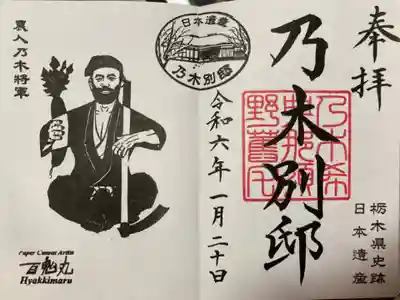 奉拝
栃木県史跡
日本遺産
乃木別邸
乃木希
典那須
野舊宅
日本遺産
乃木別邸
令和六年一月二十日
農人乃木將軍
Paper Cutout Artist
百鬼丸
Hyakkimaru